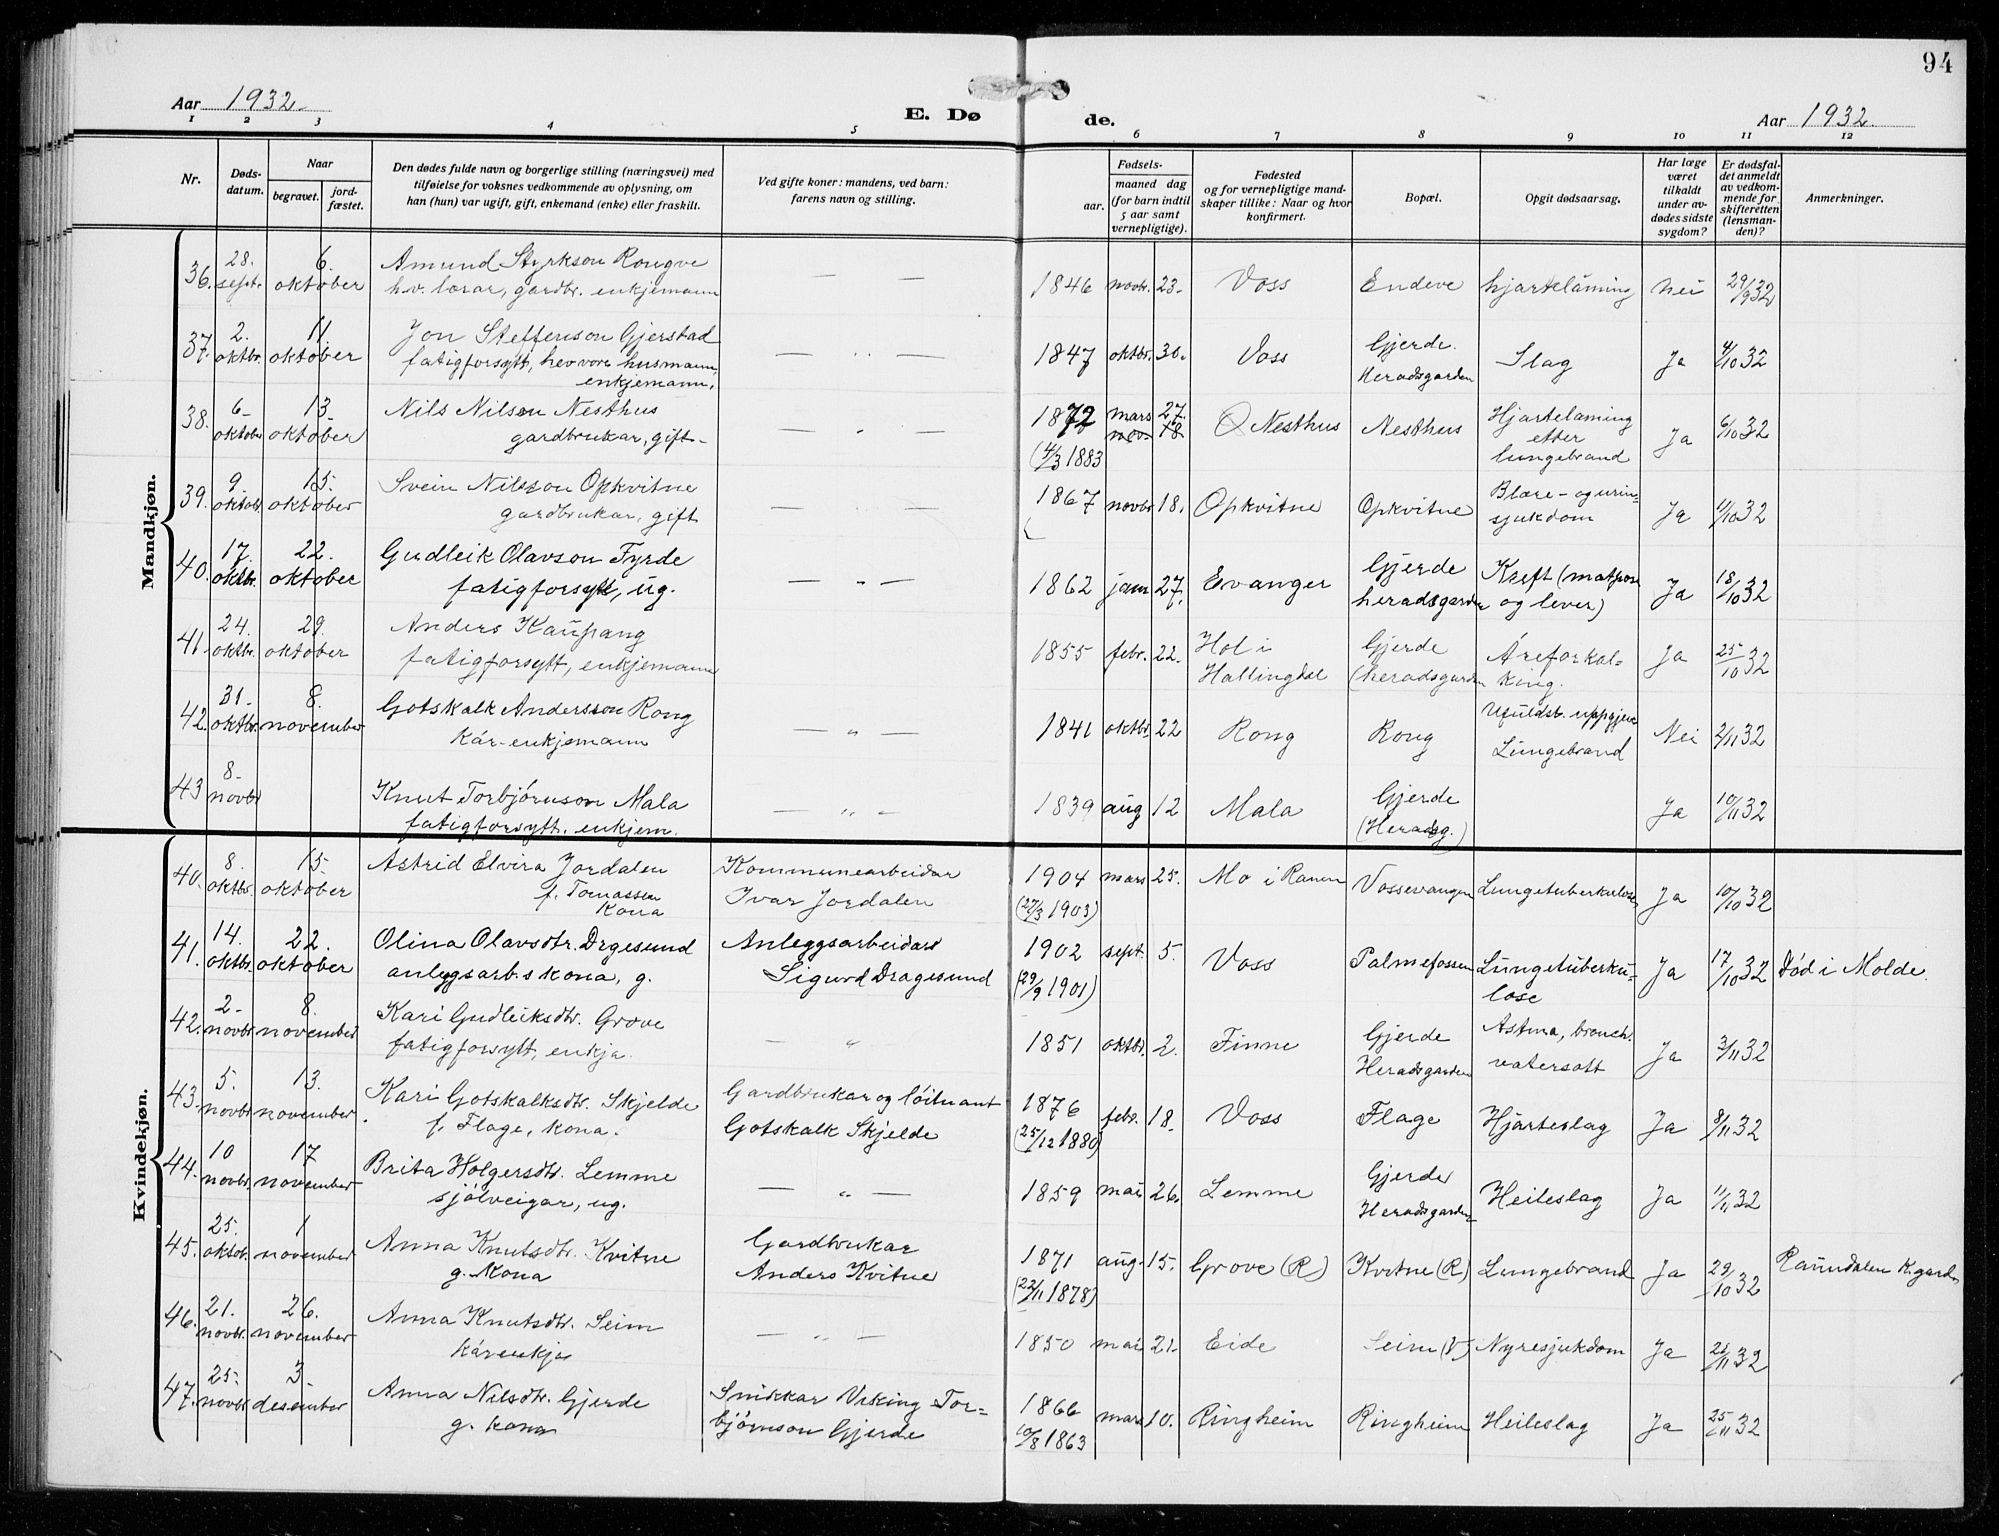 94
Aar 1932.
E. Døde.
Aar 1932.
1 2 3 4 5 6 7 8 9 10 11 12
Nr.
Døds-
datum.
Naar
begravet.
jord-
fæstet.
Den dødes fulde navn og borgerlige stilling (næringsvei) med
tilføielse for voksnes vedkommende av oplysning, om
han (hun) var ugift, gift, enkemand (enke) eller fraskilt.
Ved gifte koner: mandens, ved barn:
farens navn og stilling.
Fødsels-
aar.
maaned dag
(for barn indtil
5 aar samt
vernepligtige).
Fødested
og for vernepligtige mand-
skaper tillike: Naar og hvor
konfirmert.
Bopæl.
Opgit dødsaarsag.
Har læge
været
tilkaldt
under av-
dødes sidste
sygdom?
Er dødsfal-
det anmeldt
av vedkom-
mende for
skifteretten
(lensman-
den)?
Anmerkninger.
Mandkjøn.
36. 28. sept. 6. oktober Amund Styrkson Rongve
hv. lærar, gardbr. enkjemann — — 1846 novbr. 23. Voss Endeve hjartelåming Nei 29/9 32
37. 2. oktbr. 11. oktober Jon Steffenson Gjerstad
fatigforsytt, hev vore husmann,
enkjemann, — " — 1847 oktbr. 30. Voss Gjerde.
Heradsgarden Slag Ja 4/10 32
38. 6- oktober 13. oktober Nils Nilson Nesthus
gardbrukar, gift- — " — 1872 mars 27.
nov. 18.
(4/3 1883 Nesthus Nesthus Hjartelåming
etter
lungebrand Ja 6/10 32
39. 9. oktobr. 15. oktober Svein Nilsson Opkvitne
gardbrukar, gift — " — 1867 novbr 18. Opkvitne Opkvitne Blære- og urin-
sjukdom Ja 11/10 32
40. 17. oktbr. 22. oktober Gudleik Olavson Fyrde
fatigforsytt, ug. — " — 1862 jam 27. Evanger Gjerde
heradsgarden Kreft (matpose
og lever) Ja 18/10 32
41. 24. oktbr. 29. oktober Anders Kaupang
fatigforsytt, enkjemann 1855 febr. 22. Hol i
Hallingdal Gjerde
(heradsgarden Åreforkal-
king. Ja 25/10 32
42. 31. oktbr. 8. november Gotskalk Andersson Rong
Kår-enkjemann — " — 1841 oktbr. 22 Rong Rong
Lungebrand Nei 2/11 32
43 8- novbr Knut Torbjørnson Mala
fatigforsytt, enkjem. — " — 1839 aug 12 Mala Gjerde
(Heradsg.) Ja 10/11 32
Kvindekjøn.
40. 8. oktbr. 15. oktober Astrid Elvira Jordalen
f. Tomassen
Kona Kommunearbeidar
Ivar Jordalen 1904 mars 25.
(27/3 1903) Mo i Ranen Vossevangen Lungetuberkulose Ja 10/10 32
41. 14. oktbr. 22. oktober Olina Olavsdtr. Drgesund
anleggsarb s kona, g. Anleggsarbeidar
Sigurd Dragesund 1902 sept. 5.
(29/9 1901) Voss Palmefossen Lungetuberku-
lose Ja 17/10 32 Død i Molde.
42. 2- novbr. 8. november Kari Gudleiksdtr. Grove
fatigforsytt, enkja. — " 1851 oktbr. 2. Finne Gjerde
Heradsgarden Astma, bronch.
vatersott Ja 3/11 32
43. 5. novbr 13. november Kari Gotskalksdtr. Skjelde
f. Flage, kona. Gardbrukar og løitnant
Gotskalk Skjelde 1876 febr. 18.
(25/12 1880) Voss Flage Hjarteslag Ja 8/11 32
44. 10 novbr. 17 november Brita Holgersdtr. Lemme
sjølveigar, ug. — " — 1859 mai 26. Lemme Gjerde
Heradsgarden Heileslag Ja 11/11 32
45. 25. oktob. 1 november Anna Knutsdtr. Kvitne
g. Kona Gardbrukar
Anders Kvitne 1871 aug. 15.
(22/11 1878) Grove (R) Kvitne (R) Lungebrand Ja 29/10 32 Raundalen K.gard
46. 21. novbr. 26. november Anna Knutsdtr. Seim
kårenkja — " — 1850 mai 21. Eide Seim (V) Nyresjukdom Ja 22/11 32
47. 25. novbr 3. desember Anna Nilsdtr. Gjerde
g. kona Snikkar Viking Tor-
bjørnson Gjerde 1866 mars 10.
10/8 1863 Ringheim Ringheim Heileslag Ja 25/11 32